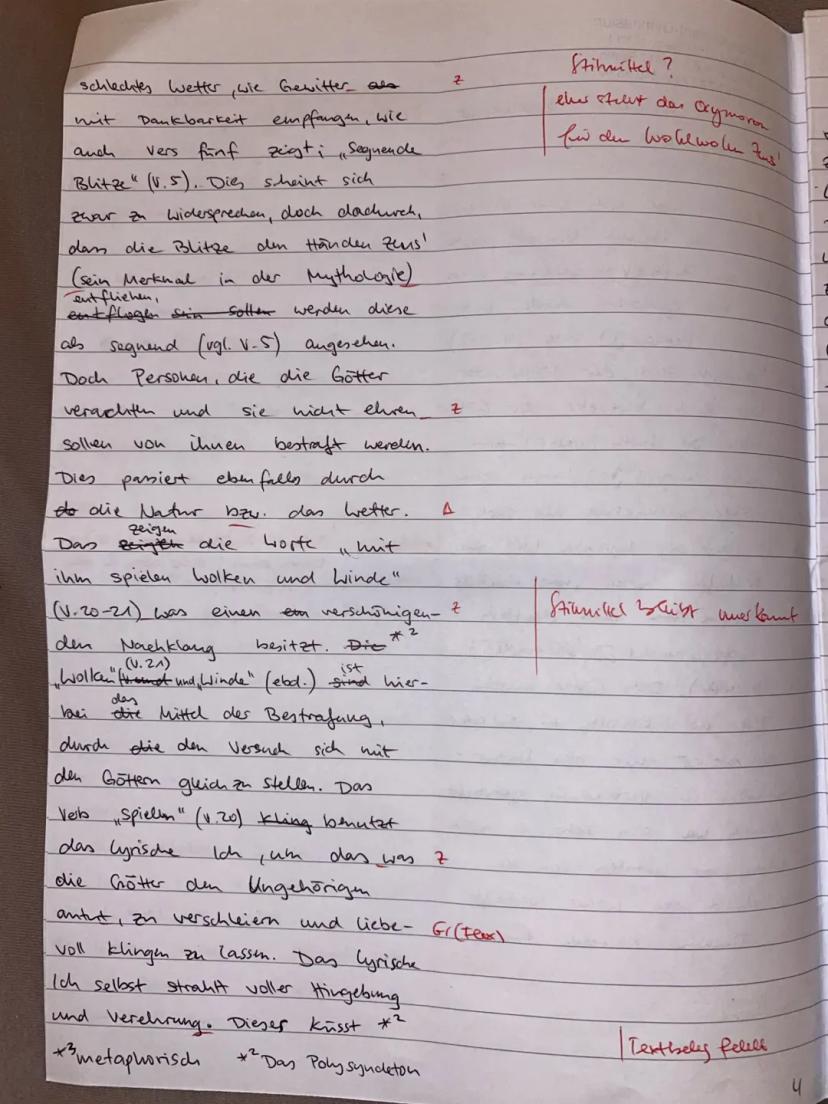 schlechtes Wetter, wie Gewitter als z
mit Dankbarkeit empfangen, wie
auch Vers fünf zeigt; „Segnende
Blitze" (V. 5). Dies scheint sich
zwar zu widersprechen, doch dadurch,
dass die Blitze den Händen Zeus'
(sein Merkmal in der Mythologie)
entfliehen,
entflogen sein sollen werden diese
als segnend (vgl. V. 5) angesehen.
Doch Personen, die die Götter
verachten und sie nicht ehren z
sollen von ihnen bestraft werden.
Dies passiert ebenfalls durch
die Natur bzw. das Wetter. A
zeigen
Das die Worte „mit
ihm spielen Wolken und Winde"
(V. 20-21) was einen verschönigen- z
den Nachklang besitzt. Die *²
(V. 21) ist
„Wolken" und „Winde" (ebd.) sind hier-
das
bei die Mittel der Bestrafung,
durch die den Versuch sich mit
den Göttern gleich zu stellen. Das
Verb „spielen" (V. 20) kling benutzt
das lyrische Ich, um das was z
die Götter den Ungehörigen
antut, zu verschleiern und liebe- Gr
voll klingen zu lassen. Das lyrische
Ich selbst strahlt voller Hingebung
und Verehrung. Dieser küsst *²
*³ metaphorisch *² Das Polysyndeton
Stilmittel?
eher steht das Oxymoron
für den Wohlwollen Zeus'
Stilmittel bleibt unerkannt
Textbeleg fehlt
4